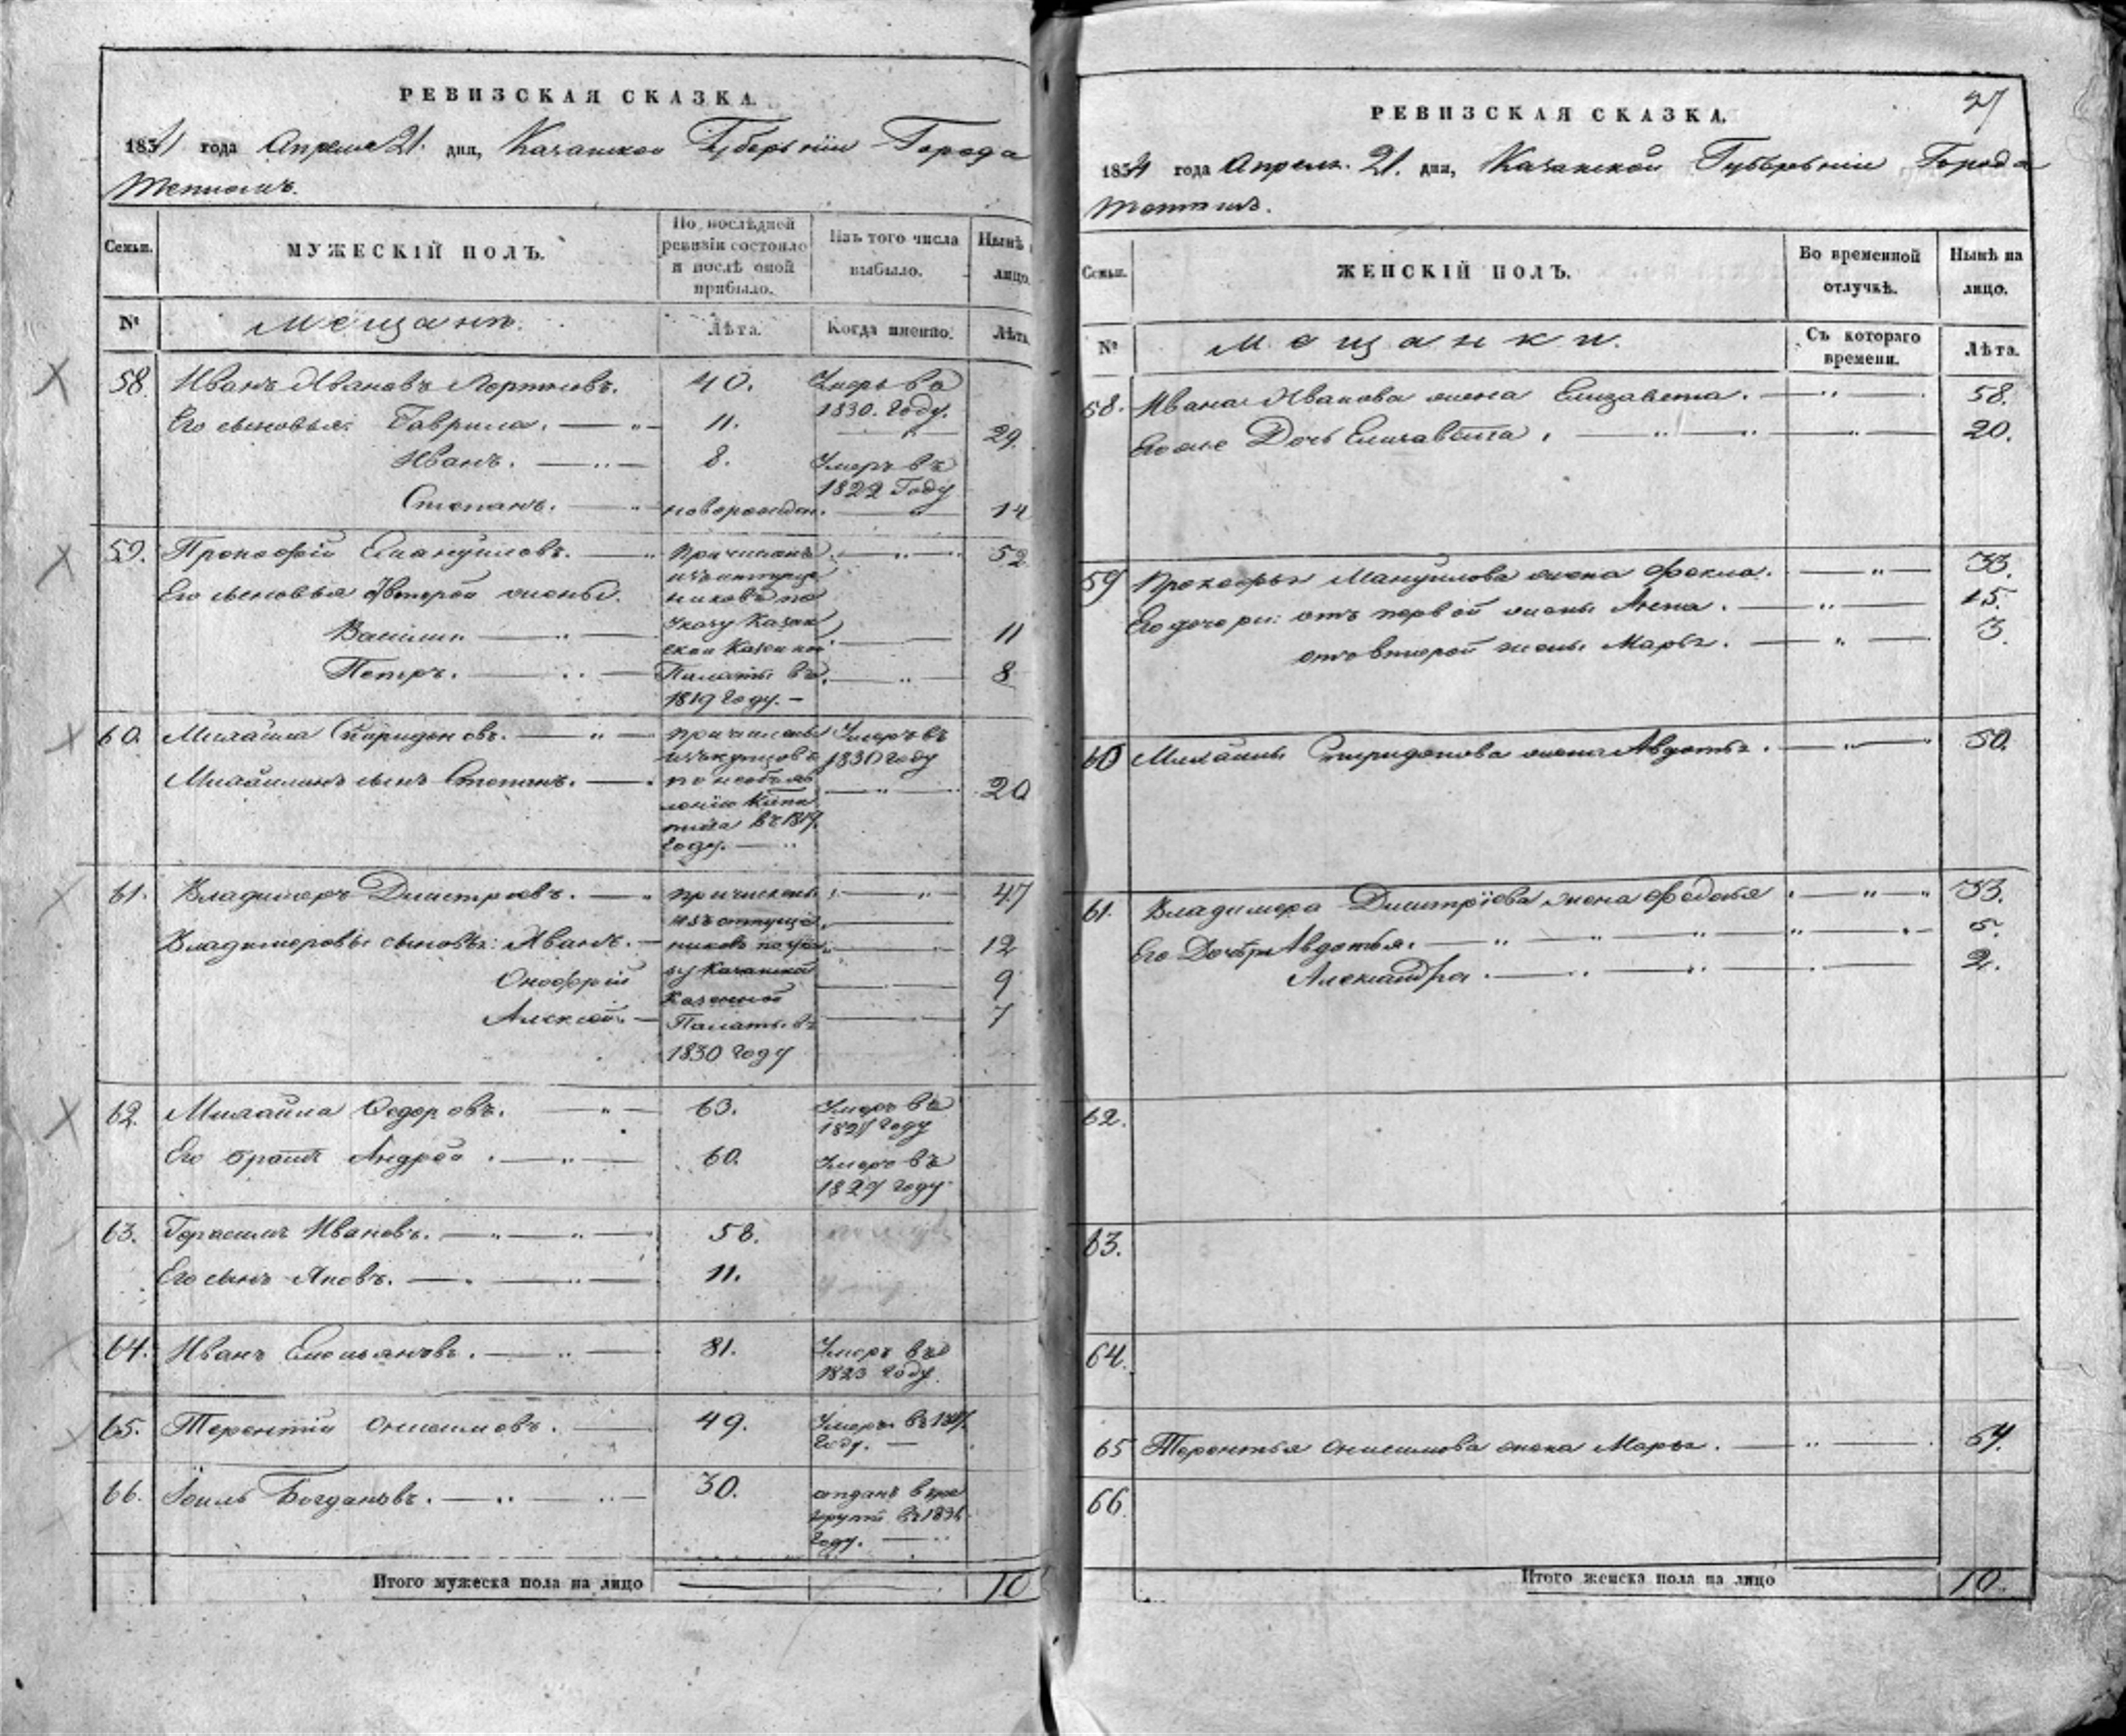 РЕВИЗСКАЯ СКАЗКА.
1834 года Апреля 21. дня, Казанской Губернiи Города
Тетюшъ.
Семьи.
МУЖЕСКІЙ ПОЛЪ.
По послѣдней ревизіи состояло и послѣ оной прибыло.
Изъ того числа выбыло.
Нынѣ
лицо.
№
Мещанъ.
Лѣта.
Когда именно.
Лѣта
58. Иванъ Ивановъ 40. Умеръ въ
1830. Году.
Его сыновья: Гаврила. 11. 29.
Иванъ. 8. Умеръ въ
1822 Году
Степанъ. новорожден. 14
59. Прокофiй Емануиловъ. Причисленъ 52
изъ отпуще
Его сыновья от второй жены. никовъ по
Указу Казан
Василiй 11
ской Казенной
Петръ. Палаты въ 8
1819 году.
60. Михайла Спиридоновъ. причисленъ Умеръ въ
изъ купцовъ 1830 году
Михайлинъ сынъ Степанъ. по необъяв 20
ленiю Капи
тала въ 1819.
году.
61. Владимеръ Дмитрiевъ. причисленъ 47
изъ отпуще
Владимеровы сыновья: Иванъ. никовъ по ука 12
зу Казанской
Онофрiй 9
Казенной
Алексей. Палаты въ 7
1830 году
62. Михайла Федоровъ. 63. Умеръ въ
году
Его братъ Андрей. 60. Умеръ въ
1827 году
63. Герасимъ Ивановъ. 58.
Его сынъ Яковъ. 11.
64. Иванъ Емельяновъ. 81. Умеръ въ
1823 году.
65. Терентiй Онисимовъ. 49. Умеръ въ
году.
66. Iоиль Богдановъ. 30. отданъ въ ре
круты въ
году.
Итого мужеска пола на лицо 10
27
РЕВИЗСКАЯ СКАЗКА.
1834 года Апреля. 21. дня, Казанской Губернiи Города
Тетюшъ.
Семьи.
ЖЕНСКІЙ ПОЛЪ.
Во временной отлучкѣ.
Нынѣ на лицо.
№
Мещанки.
Съ котораго времени.
Лѣта.
58. Ивана Иванова жена Елизавета. 58.
Его же Дочь Елизавета. 20.
59 Прокофья Мануилова жена Фекла. 33.
Его дочери: отъ первой жены Анна. 15.
отъ второй жены Марья. 3.
60 Михайлы Спиридонова жена Авдотья. 50.
61. Владимера Дмитрiева жена Федосья 33.
Его Дочери Авдотья. 5.
Александра. 2.
62.
63.
64.
65 Терентья Онисимова жена Марья. 64.
66.
Итого женска пола на лицо 10.